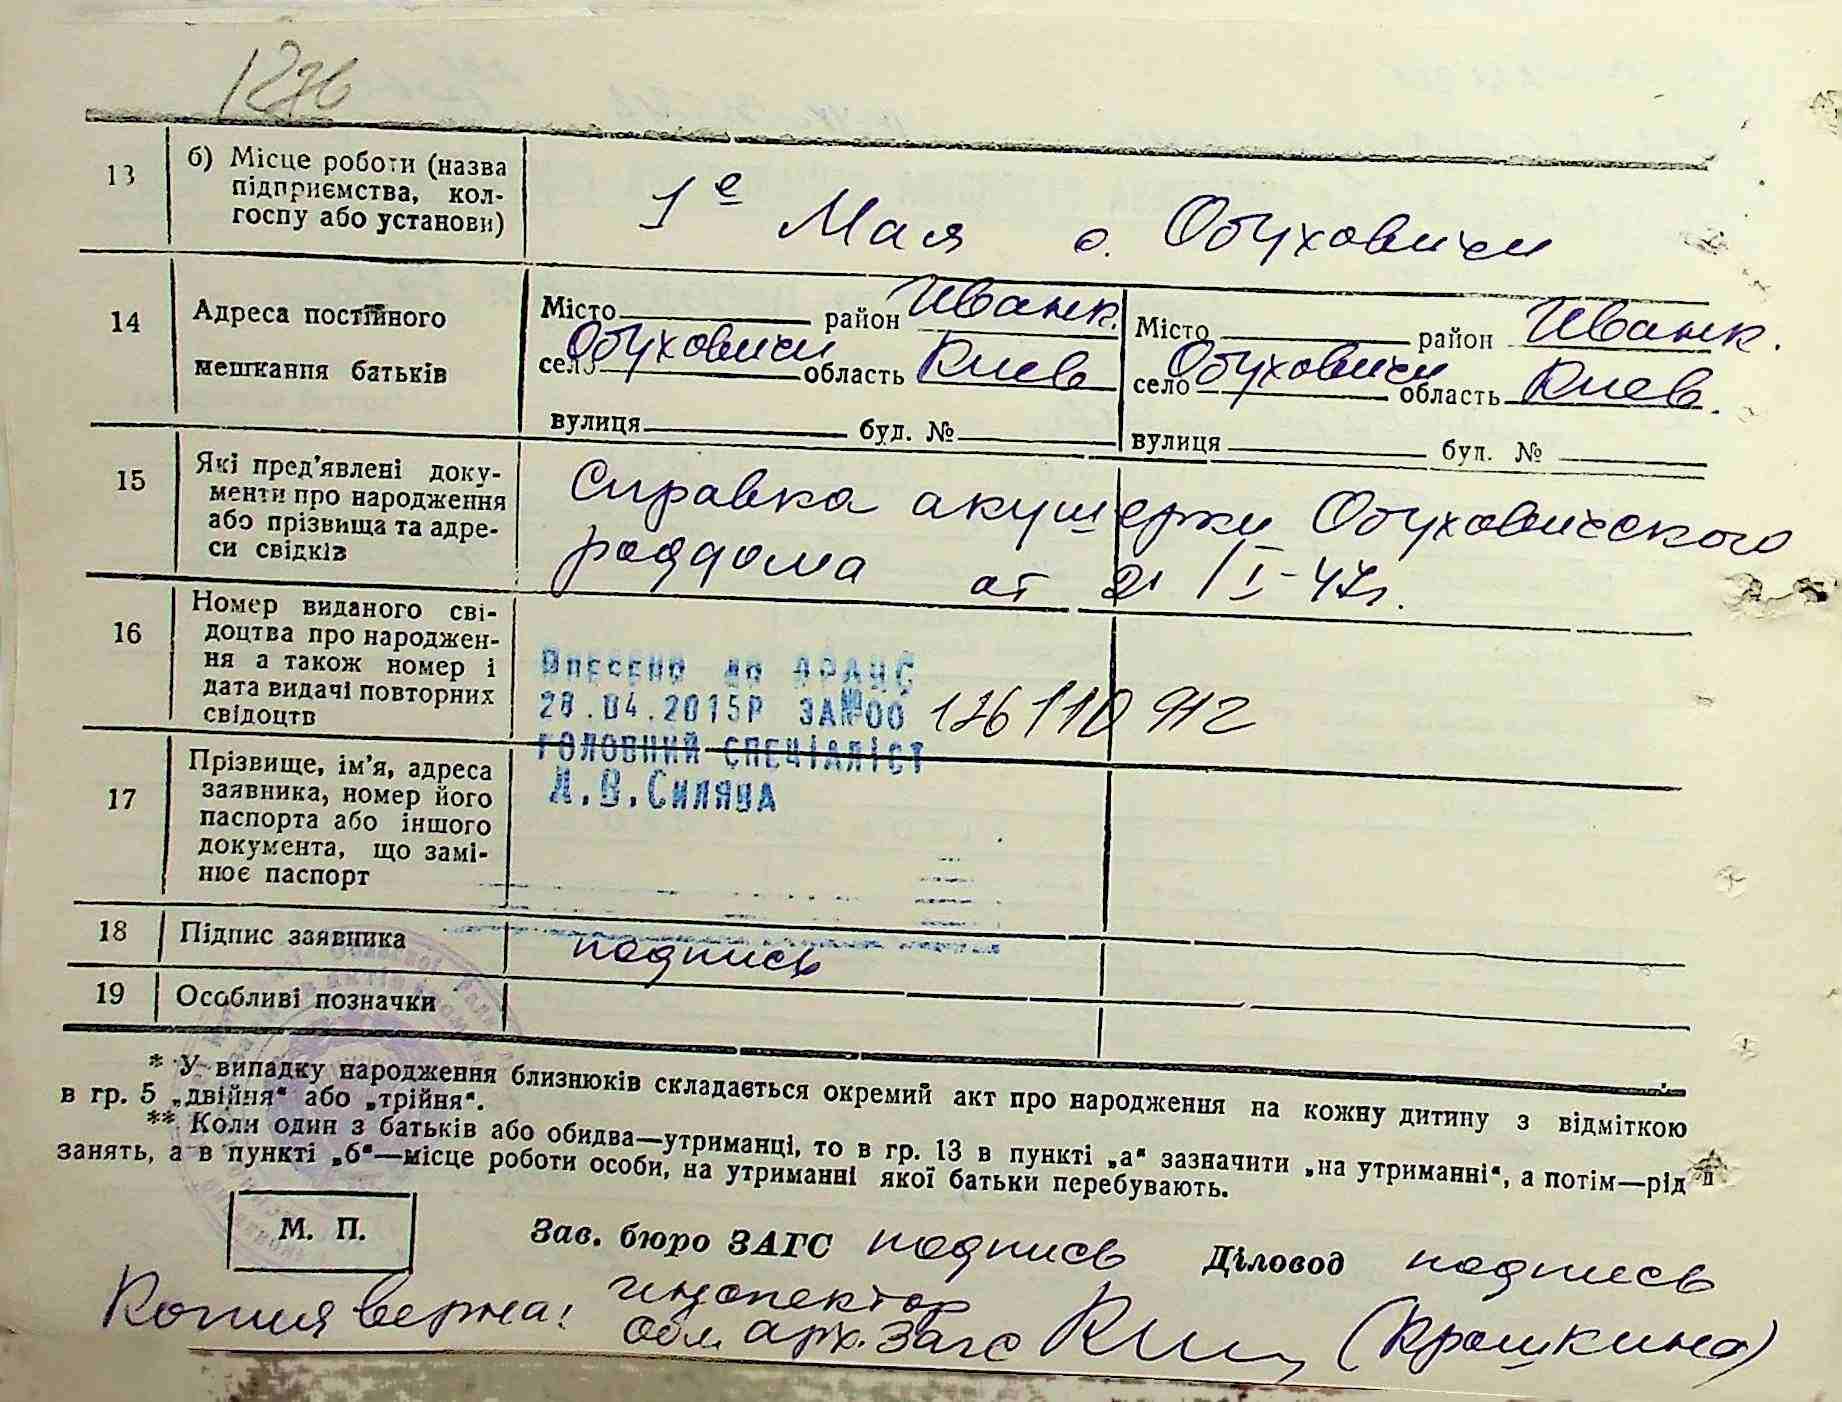 127б
13
б) Місце роботи (назва
підприємства, кол-
госпу або установи)
1е Мая с. Обуховичи
14
Адреса постійного
мешкання батьків
Місто район Иванк.
село Обуховичи область Киев
вулиця буд. №
Місто район Иванк.
село Обуховичи область Киев.
вулиця буд. №
15
Які пред'явлені доку-
менти про народження
або прізвища та адре-
си свідків
Справка акушерки Обуховичского
роддома от 21/I-47г.
16
Номер виданого сві-
доцтва про народжен-
ня а також номер і
дата видачі повторних
свідоцтв
Внесено до ДРАЦС
28.04.2015р за№00 126110 912
головний спеціаліст
17
Прізвище, ім'я, адреса
заявника, номер його
паспорта або іншого
документа, що замі-
нює паспорт
18
Підпис заявника
подпись
19
Особливі позначки
* У випадку народження близнюків складається окремий акт про народження на кожну дитину з відміткою
в гр. 5 „двійня“ або „трійня“.
** Коли один з батьків або обидва—утриманці, то в гр. 13 в пункті „а“ зазначити „на утриманні“, а потім—рід
занять, а в пункті „б“—місце роботи особи, на утриманні якої батьки перебувають.
М. П.
Зав. бюро ЗАГС подпись Діловод подпись
Копия верна! инспектор
обл. арх. Загс (Крошкина)